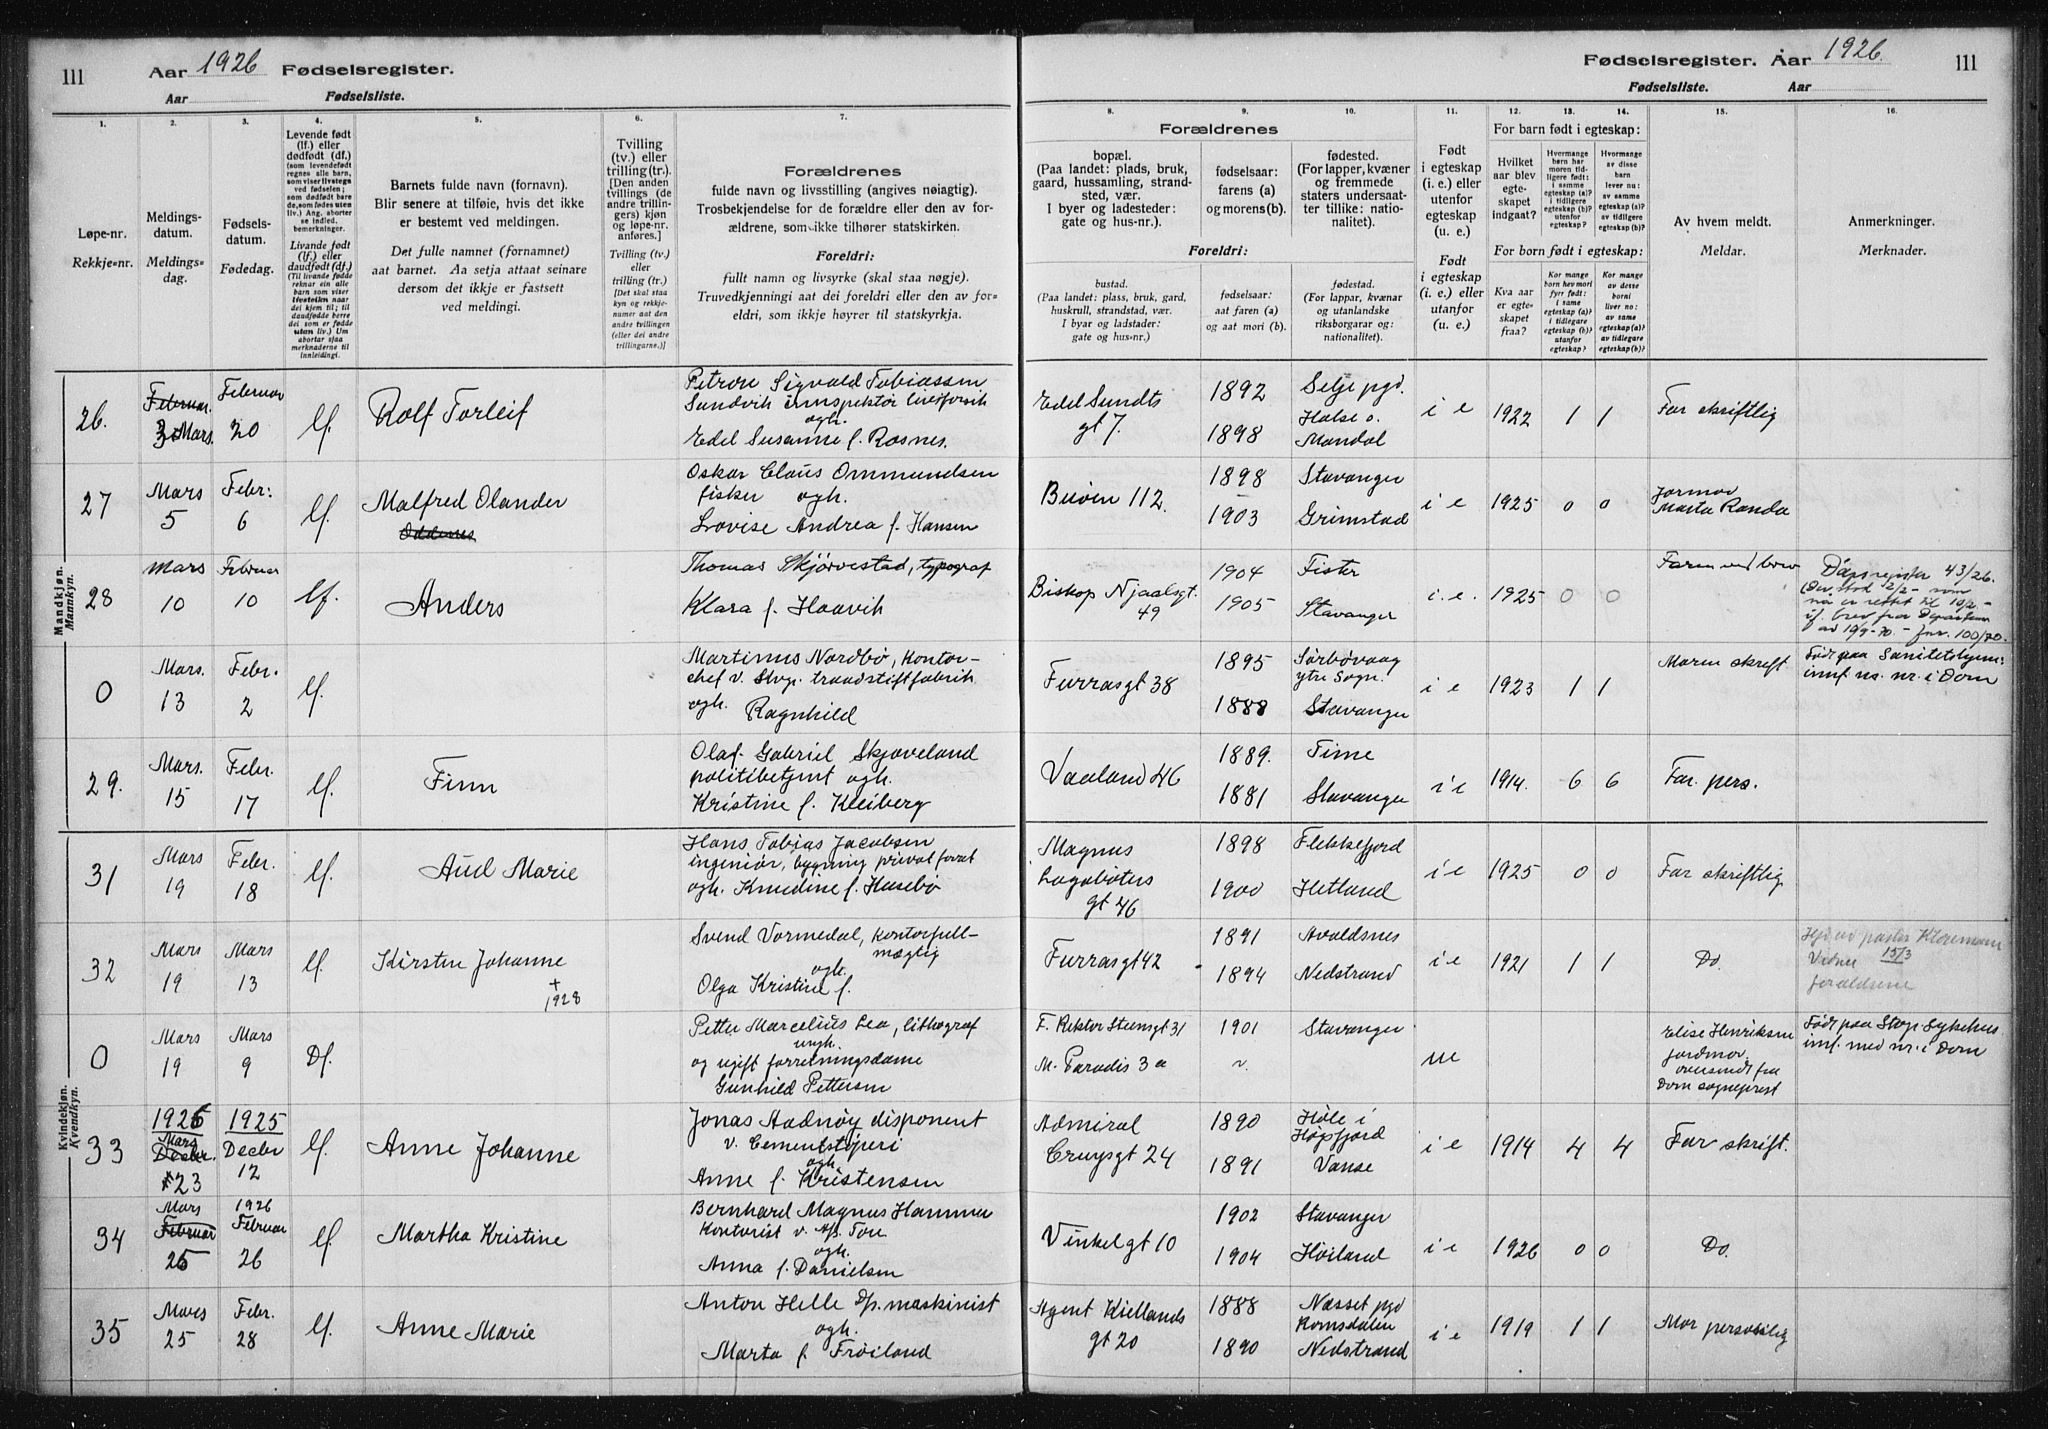 111 Aar 1926 Fødselsregister.
Aar Fødselsliste.
Fødselsregister. Aar 1926. 111
Fødselsliste. Aar
1.
Løpe-nr.
Rekkje-nr.
2.
Meldings-
datum.
Meldings-
dag.
3.
Fødsels-
datum.
Fødedag.
4.
Levende født
(lf.) eller
dødfødt (df.)
(som levendefødt
regnes alle barn,
som viser livstegn
ved fødselen;
som dødfødt bare
de, som fødes uten
liv.) Ang. aborter
se indled.
bemerkninger.
Livande født
(lf.) eller
daudfødt (df.)
(Til livande fødde
reknar ein alle
barn som viser
livsteikn naar
dei kjem til; til
daudfødde berre
dei som er fødde
utan liv.) Um
abortar sjaa
merknaderne til
innleidingi.
5.
Barnets fulde navn (fornavn).
Blir senere at tilføie, hvis det ikke
er bestemt ved meldingen.
Det fulle namnet (fornamnet)
aat barnet. Aa setja attaat seinare
dersom det ikkje er fastsett
ved meldingi.
6.
Tvilling
(tv.) eller
trilling (tr.).
[Den anden
tvillings (de
andre trillin-
gers) kjøn
og løpe-nr.
anføres.]
Tvilling (tv.)
eller
trilling (tr.)
[Det skal staa
kyn og rekkje-
numer aat den
andre tvillingen
(eller dei andre
trillingarne.)]
7.
Forældrenes
fulde navn og livsstilling (angives nøiagtig).
Trosbekjendelse for de forældre eller den av for-
ældrene, som ikke tilhører statskirken.
Foreldri:
fullt namn og livsyrke (skal staa nøgje).
Truvedkjenningi aat dei foreldri eller den av for-
eldri, som ikkje høyrer til statskyrkja.
Forældrenes
8.
bopæl.
(Paa landet: plads, bruk,
gaard, hussamling, strand-
sted, vær.
I byer og ladesteder:
gate og hus-nr.).
9.
fødselsaar:
farens (a)
og morens (b).
10.
fødested.
(For lapper, kvæner
og fremmede
staters undersaat-
ter tillike: natio-
nalitet).
Foreldri:
bustad.
(Paa landet: plass, bruk, gard,
huskrull, strandstad, vær.
I byar og ladstader:
gate og hus-nr.)
fødselsaar:
aat faren (a)
og aat mori (b).
fødestad.
(For lappar, kvænar
og utanlandske
riksborgarar og:
nationalitet.)
11.
Født
i egteskap
(i. e.) eller
utenfor
egteskap
(u. e.)
Født
i egteskap
(i. e.) eller
utanfor
(u. e.)
For barn født i egteskap:
12.
Hvilket
aar blev
egte-
skapet
indgaat?
13.
Hvormange
børn har
moren tid-
ligere født:
i samme
egteskap (a)?
i tidligere
egteskap (b)?
utenfor
egteskap?
14.
Hvormange
av disse
barn
lever nu:
av samme
egteskap (a)?
av tidligere
egteskap (b)?
For born født i egteskap:
Kva aar
er egte-
skapet
fraa?
Kor mange
born hev mori
fyrr født:
i same
egteskap (a)?
i tidlegare
egteskap (b)?
utanfor
egteskap?
Kor mange
av desse
borni
liver no:
av same
egteskap (a)?
av tidlegare
egteskap (b)?
15.
Av hvem meldt.
Meldar.
16.
Anmerkninger.
Merknader.
Mandkjøn.
Mannkyn.
26. Februar. 2 Mars. Februar 20 lf. Rolf Torleif
Petron Sigvald Tobiassen
Sundvik inspektør
ogh.
Edel Susanne f. Rosnes.
Edel Sundts
gt 7.
1892 Selje pgd
1898 Halse o.
Mandal
i e 1922 1 1 Far skriftlig
27 Mars 5 Febr. 6 lf. Malfred Olander
Oskar Claus Ommundsen
fisker ogh.
Lovise Andrea f. Hansen
Buøen 112.
1898 Stavanger
1903 Grimstad
i e 1925 0 0 Jormor
Marta Randa
28 Mars 10 Februar 10 lf. Anders
Thomas Skjørvestad, typograf
Klara f. Haavik
Biskop Njaalsgt.
49
1904 Fister
1905 Stavanger
i. e. 1925 0 0 Faren ved brev
Dåpsregister 43/26.
(Der stod 2/2 - som
nå er rettet til 10/2 -
if. brev fra Departem
av 19/9-70. - Jnr. 100/70.
0 Mars. 13 Febr. 2 lf.
Martinus Nordbø, kontor-
chef v. Stvgr. traadstiftfabrik
ogh. Ragnhild
Furrasgt 38
1895 Sørbøvaag
ytre Sogn.
1888 Stavanger
i e 1923 1 1 Moren skrift
Født paa Sanitetshjem.
innf. m. nr. i Dom
29. Mars. 15 Febr. 17 lf. Finn
Olaf Gabriel Skjæveland
politibetjent ogh.
Kristine f. Kleiberg
Vaaland 46
1889. Time
1881 Stavanger
i e 1914. 6 6 Far. pers.
Kvindekjøn.
Kvendkyn.
31 Mars 19 Febr. 18 lf. Aud Marie
Hans Tobias Jacobsen
ingeniør, bygning privat forret
ogh. Knudine f. Husebø
Magnus
Lagabøters
gt 46
1898 Flekkefjord
1900 Hetland
i e 1925 0 0 Far skriftlig
32 Mars 19 Mars 13 lf. Kirsten Johanne
+
1928
Svend Vormedal, kontorfull-
mægtig
ogh.
Olga Kristine f.
Furrasgt 42
1891 Avaldsnes
1894 Nedstrand
i e 1921 1 1 Do.
Hjd. av pastor Klovemann
Vidner 15/3
foreldrene
0 Mars 19 Mars 9 Df.
Petter Marcelius Lea, lithograf
ungk.
og ugift forretningsdame
Gunhild Pettersen
F. Rektor Steensgt 31
M. Paradis 3 a
1901 Stavanger
ue
Elise Henriksen
jordmor,
oversendt fra
Dom sogneprest
Født paa Stvgr. Sykehus
innf. med nr. i Dom
33 1926 Mars Decbr. 23 1925 Decbr 12 lf. Anne Johanne
Jonas Aadnøy disponent
v. Cementstøperi
ogh.
Anne f. Kristensen
Admiral
Cruysgt 24
1890 Høle i
Høgsfjord
1891 Vanse
i e 1914 4 4 Far skrift.
34 Mars Februar 25 1926 Februar 26 lf. Martha Kristine
Bernhard Magnus Hammer
kontorist v. A/S Tou
ogh.
Anna f. Danielsen
Vinkelgt 10
1902 Stavanger
1904 Høiland
i e 1926 0 0 Do.
35 Mars 25 Febr. 28 lf. Anne Marie
Anton Helle D/p. maskinist
ogh.
Marta f. Frøiland
Agent Kiellands
gt 20
1888 Nesset pgd
Romsdalen
1890 Nedstrand
i e 1919 1 1 Mor personlig